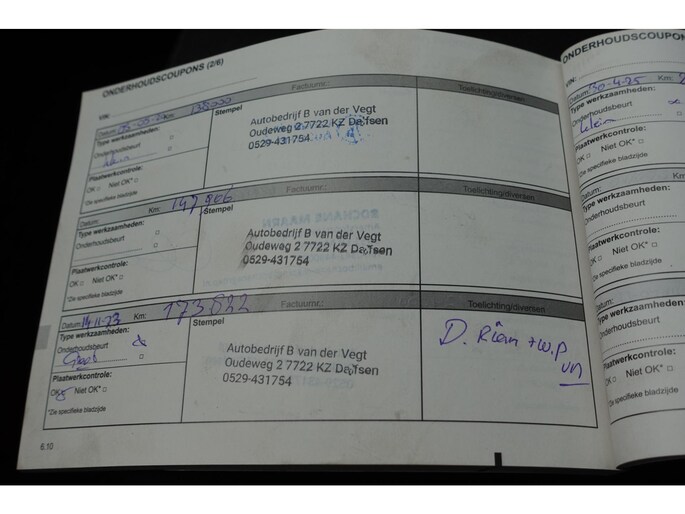 ONDERHOUDSCOUPONS (2/6)
VIN:
Datum: Km: Factuurnr.: Toelichting/diversen
Type werkzaamheden: Stempel
Onderhoudsbeurt
Klein
Plaatwerkcontrole:
OK □ Niet OK* □
*De specifieke bladzijde
Autobedrijf B van der Vegt
Oudeweg 2 7722 KZ Dalfsen
0529-431754
Datum: Km: 147 806 Factuurnr.: Toelichting/diversen
Type werkzaamheden: Stempel
Onderhoudsbeurt □
Plaatwerkcontrole:
OK □ Niet OK* □
*De specifieke bladzijde
Autobedrijf B van der Vegt
Oudeweg 2 7722 KZ Dalfsen
0529-431754
Datum: 14-11-23 Km: 173822 Factuurnr.: Toelichting/diversen
Type werkzaamheden: Stempel
Onderhoudsbeurt
Groot
Plaatwerkcontrole:
OK Niet OK* □
*De specifieke bladzijde
Autobedrijf B van der Vegt
Oudeweg 2 7722 KZ Dalfsen
0529-431754
D. Riem + w.p
vn
6.10
ONDERHOUDSCOUPON
VIN:
Datum: 30-4-25 Km:
Type werkzaamheden:
Onderhoudsbeurt
Klein
Plaatwerkcontrole:
OK □ Niet OK* □
*De specifieke bladzijde
Datum: Km
Type werkzaamheden:
Onderhoudsbeurt □
Plaatwerkcontrole:
OK □ Niet OK* □
*De specifieke bladzijde
Datum: Km
Type werkzaamheden:
Onderhoudsbeurt □
Plaatwerkcontrole:
OK □ Niet OK* □
*De specifieke bladzijde